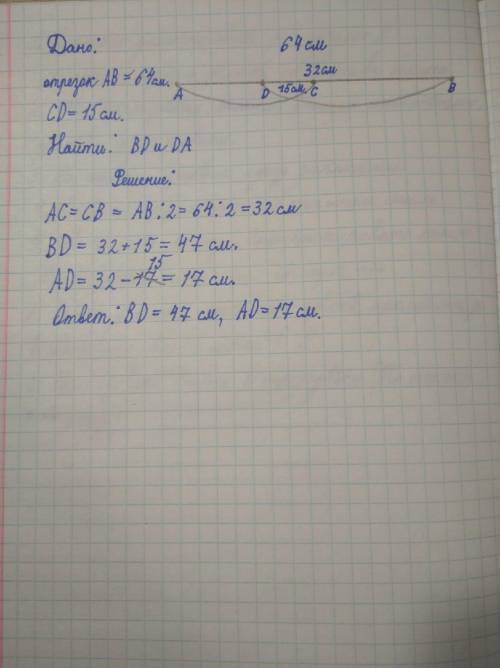 Дано:
64 см
32 см
отрезок АВ = 64 см.
A D 15 см. C B
CD = 15 см.
Найти: BD и DA
Решение:
AC = CB = AB : 2 = 64 : 2 = 32 см
BD = 32 + 15 = 47 см.
15
AD = 32 - 17 = 17 см.
Ответ: BD = 47 см, AD = 17 см.